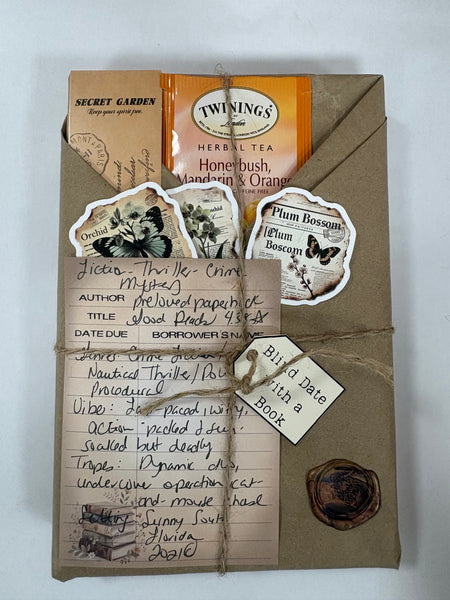 SECRET GARDEN
Keep your spirit free.
MONT & PARIS
TWININGS
of London
HERBAL TEA
Honeybush,
Mandarin & Orange
Orchid
Orchid
"Plum Bossom"
Plum
Boscom
Fiction - Thriller - Crime
Mystery
AUTHOR preloved paperback
TITLE Good Reads 4.38
DATE DUE BORROWER'S NAME
Crime
Nautical Thriller/
Procedural
Vibe: Fast paced, witty,
action packed & sun-
soaked but deadly
Tropes: Dynamic duo,
undercover operation, cat-
and-mouse chase
Setting Sunny South
Florida
2021
Blind Date
with a
Book